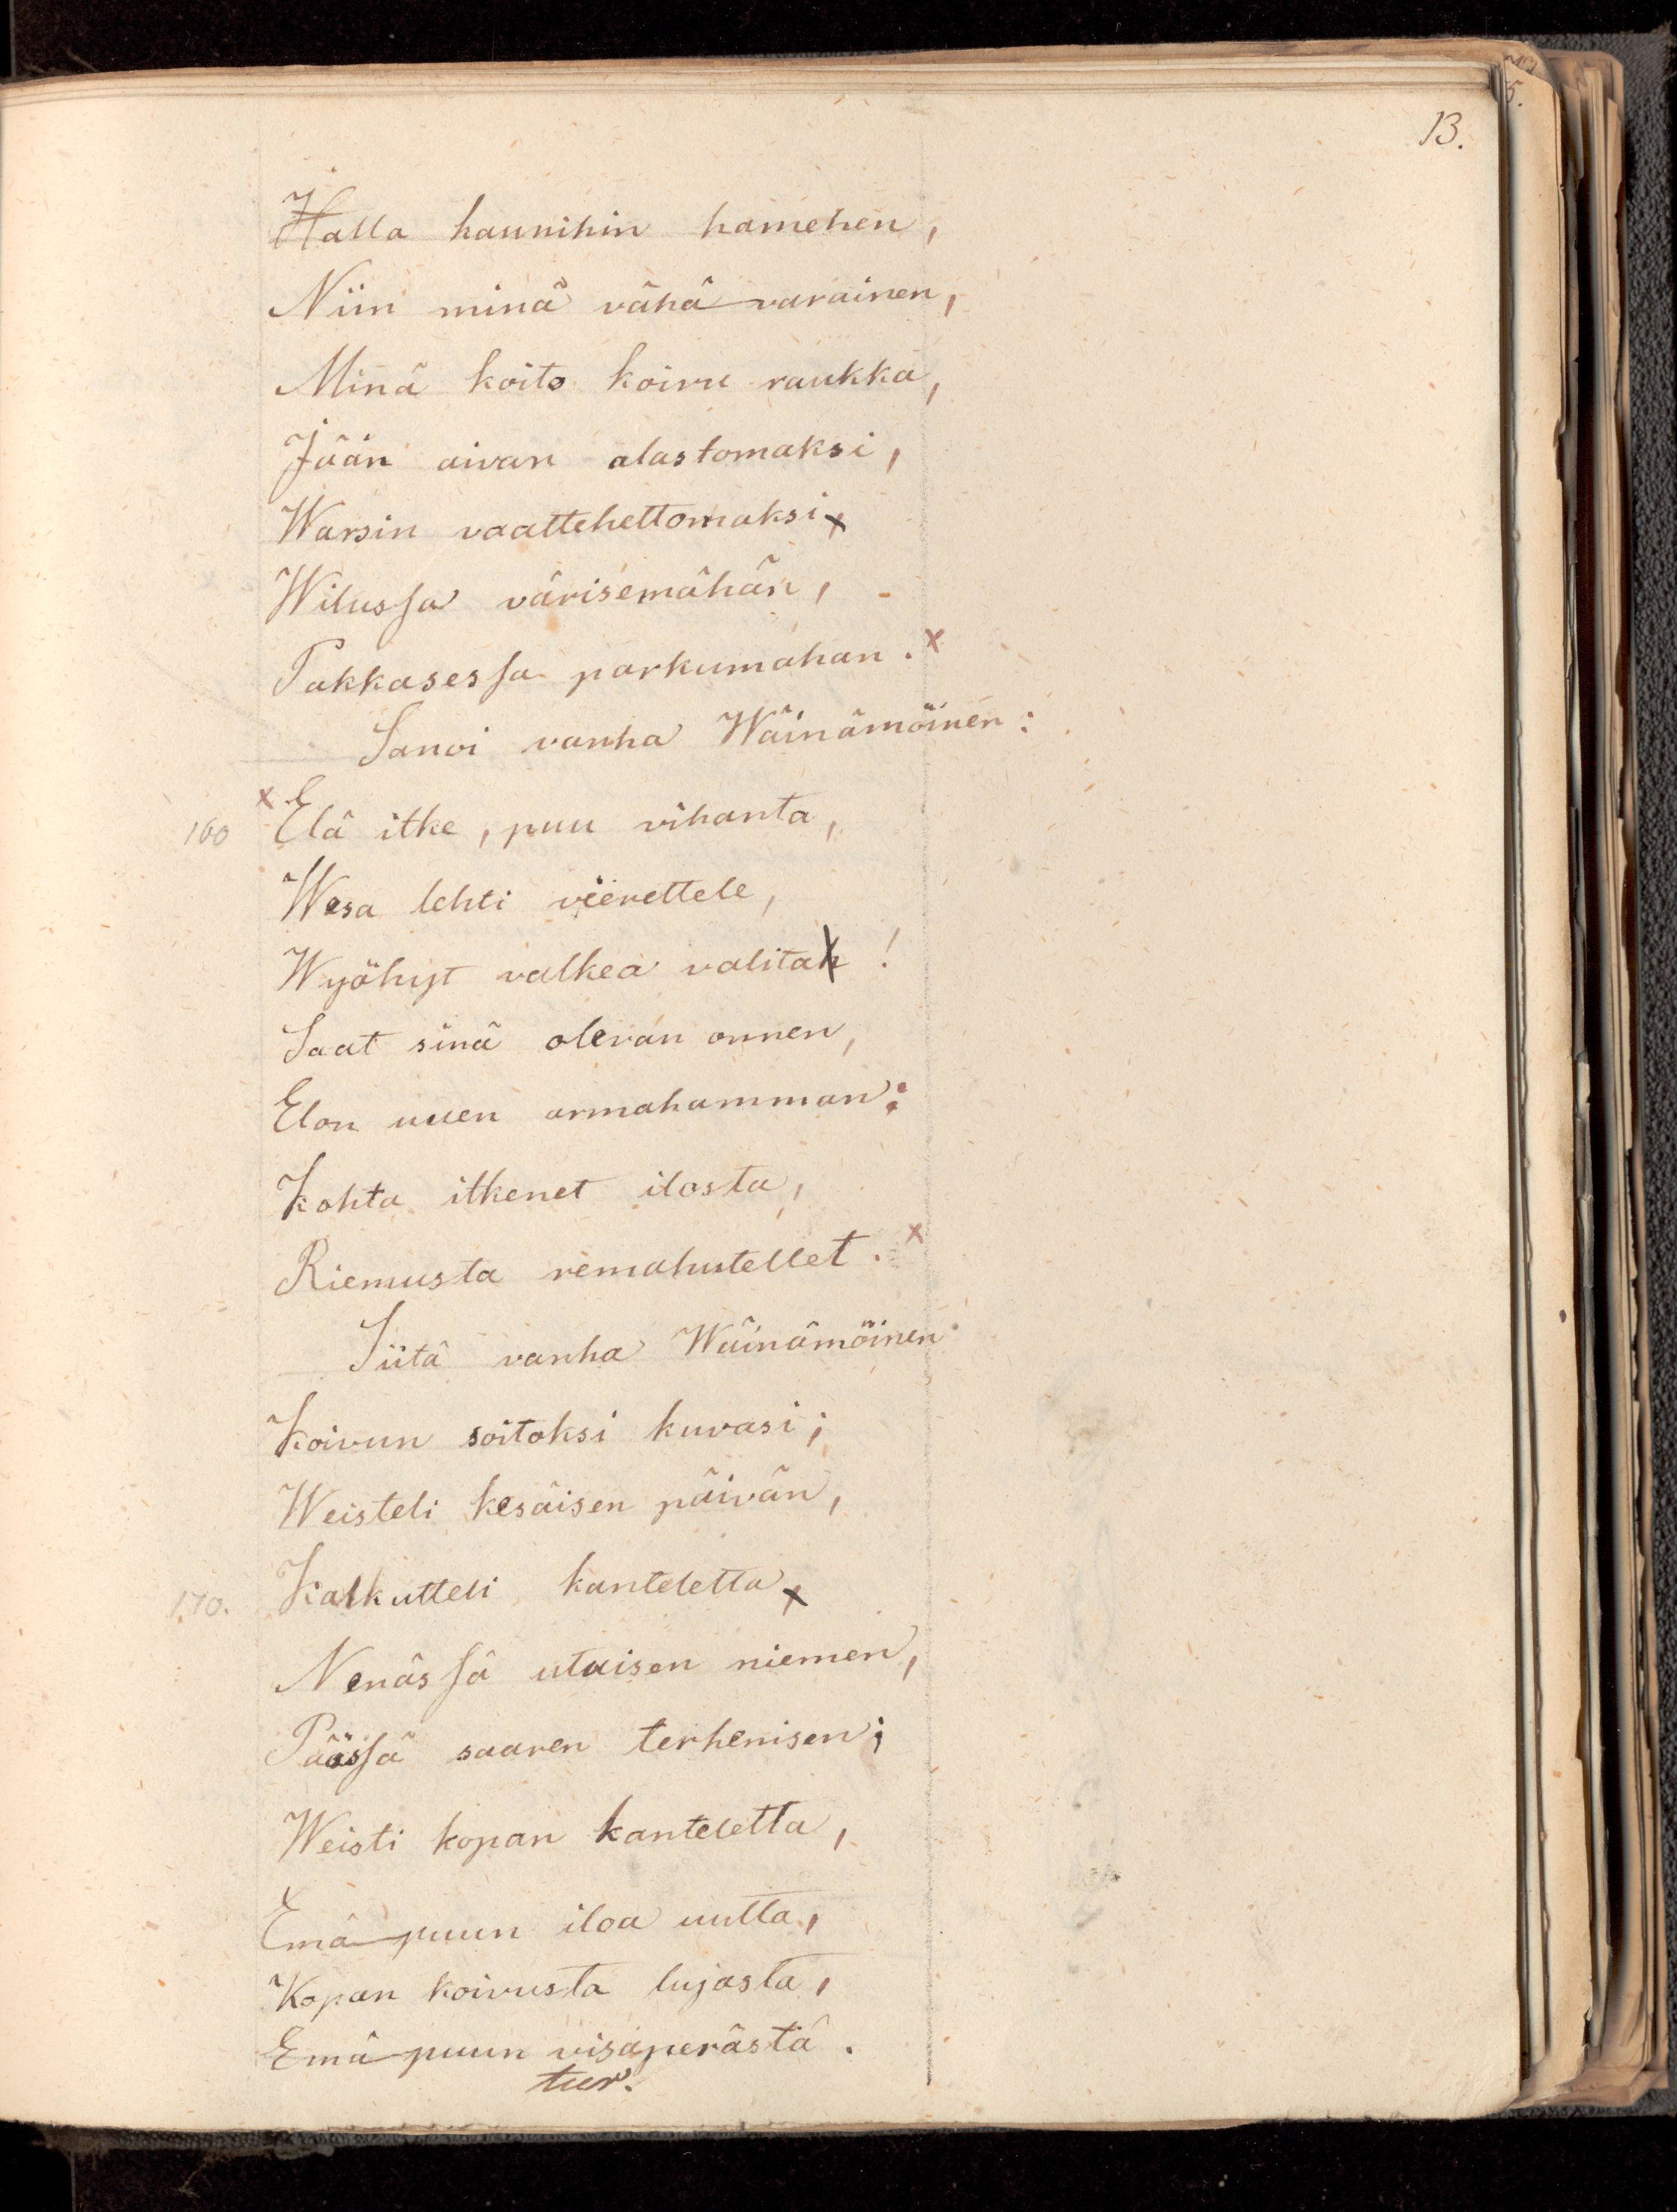 13.
Halla haunihin hamehen,
Niin minä vähä-varainen,
Minä koito koivu raukka,
Jään aivan alastomaksi,
Warsin vaattehettomaksi,
Wilussa värisemähän,
Pakkasessa parkumahan. x
Sanoi vanha Wäinämöinen:
160 x Elä itke, puu vihanta,
Wesa lehti vierettele,
Wyöhyt valkea valita!
Saat sinä olevan onnen,
Elon uuen armahamman:
Kohta itkenet ilosta,
Riemusta remahutellet. x
Siitä vanha Wäinämöinen
Koivun soitoksi kuvasi;
Weisteli kesäisen päivän,
170. Kalkutteli kanteletta
Nenässä utuisen niemen,
Päässä saaren terhenisen;
Weisti kopan kanteletta,
Emä-puun iloa uutta,
Kopan koivusta lujasta,
Emä-puun visaperästä.